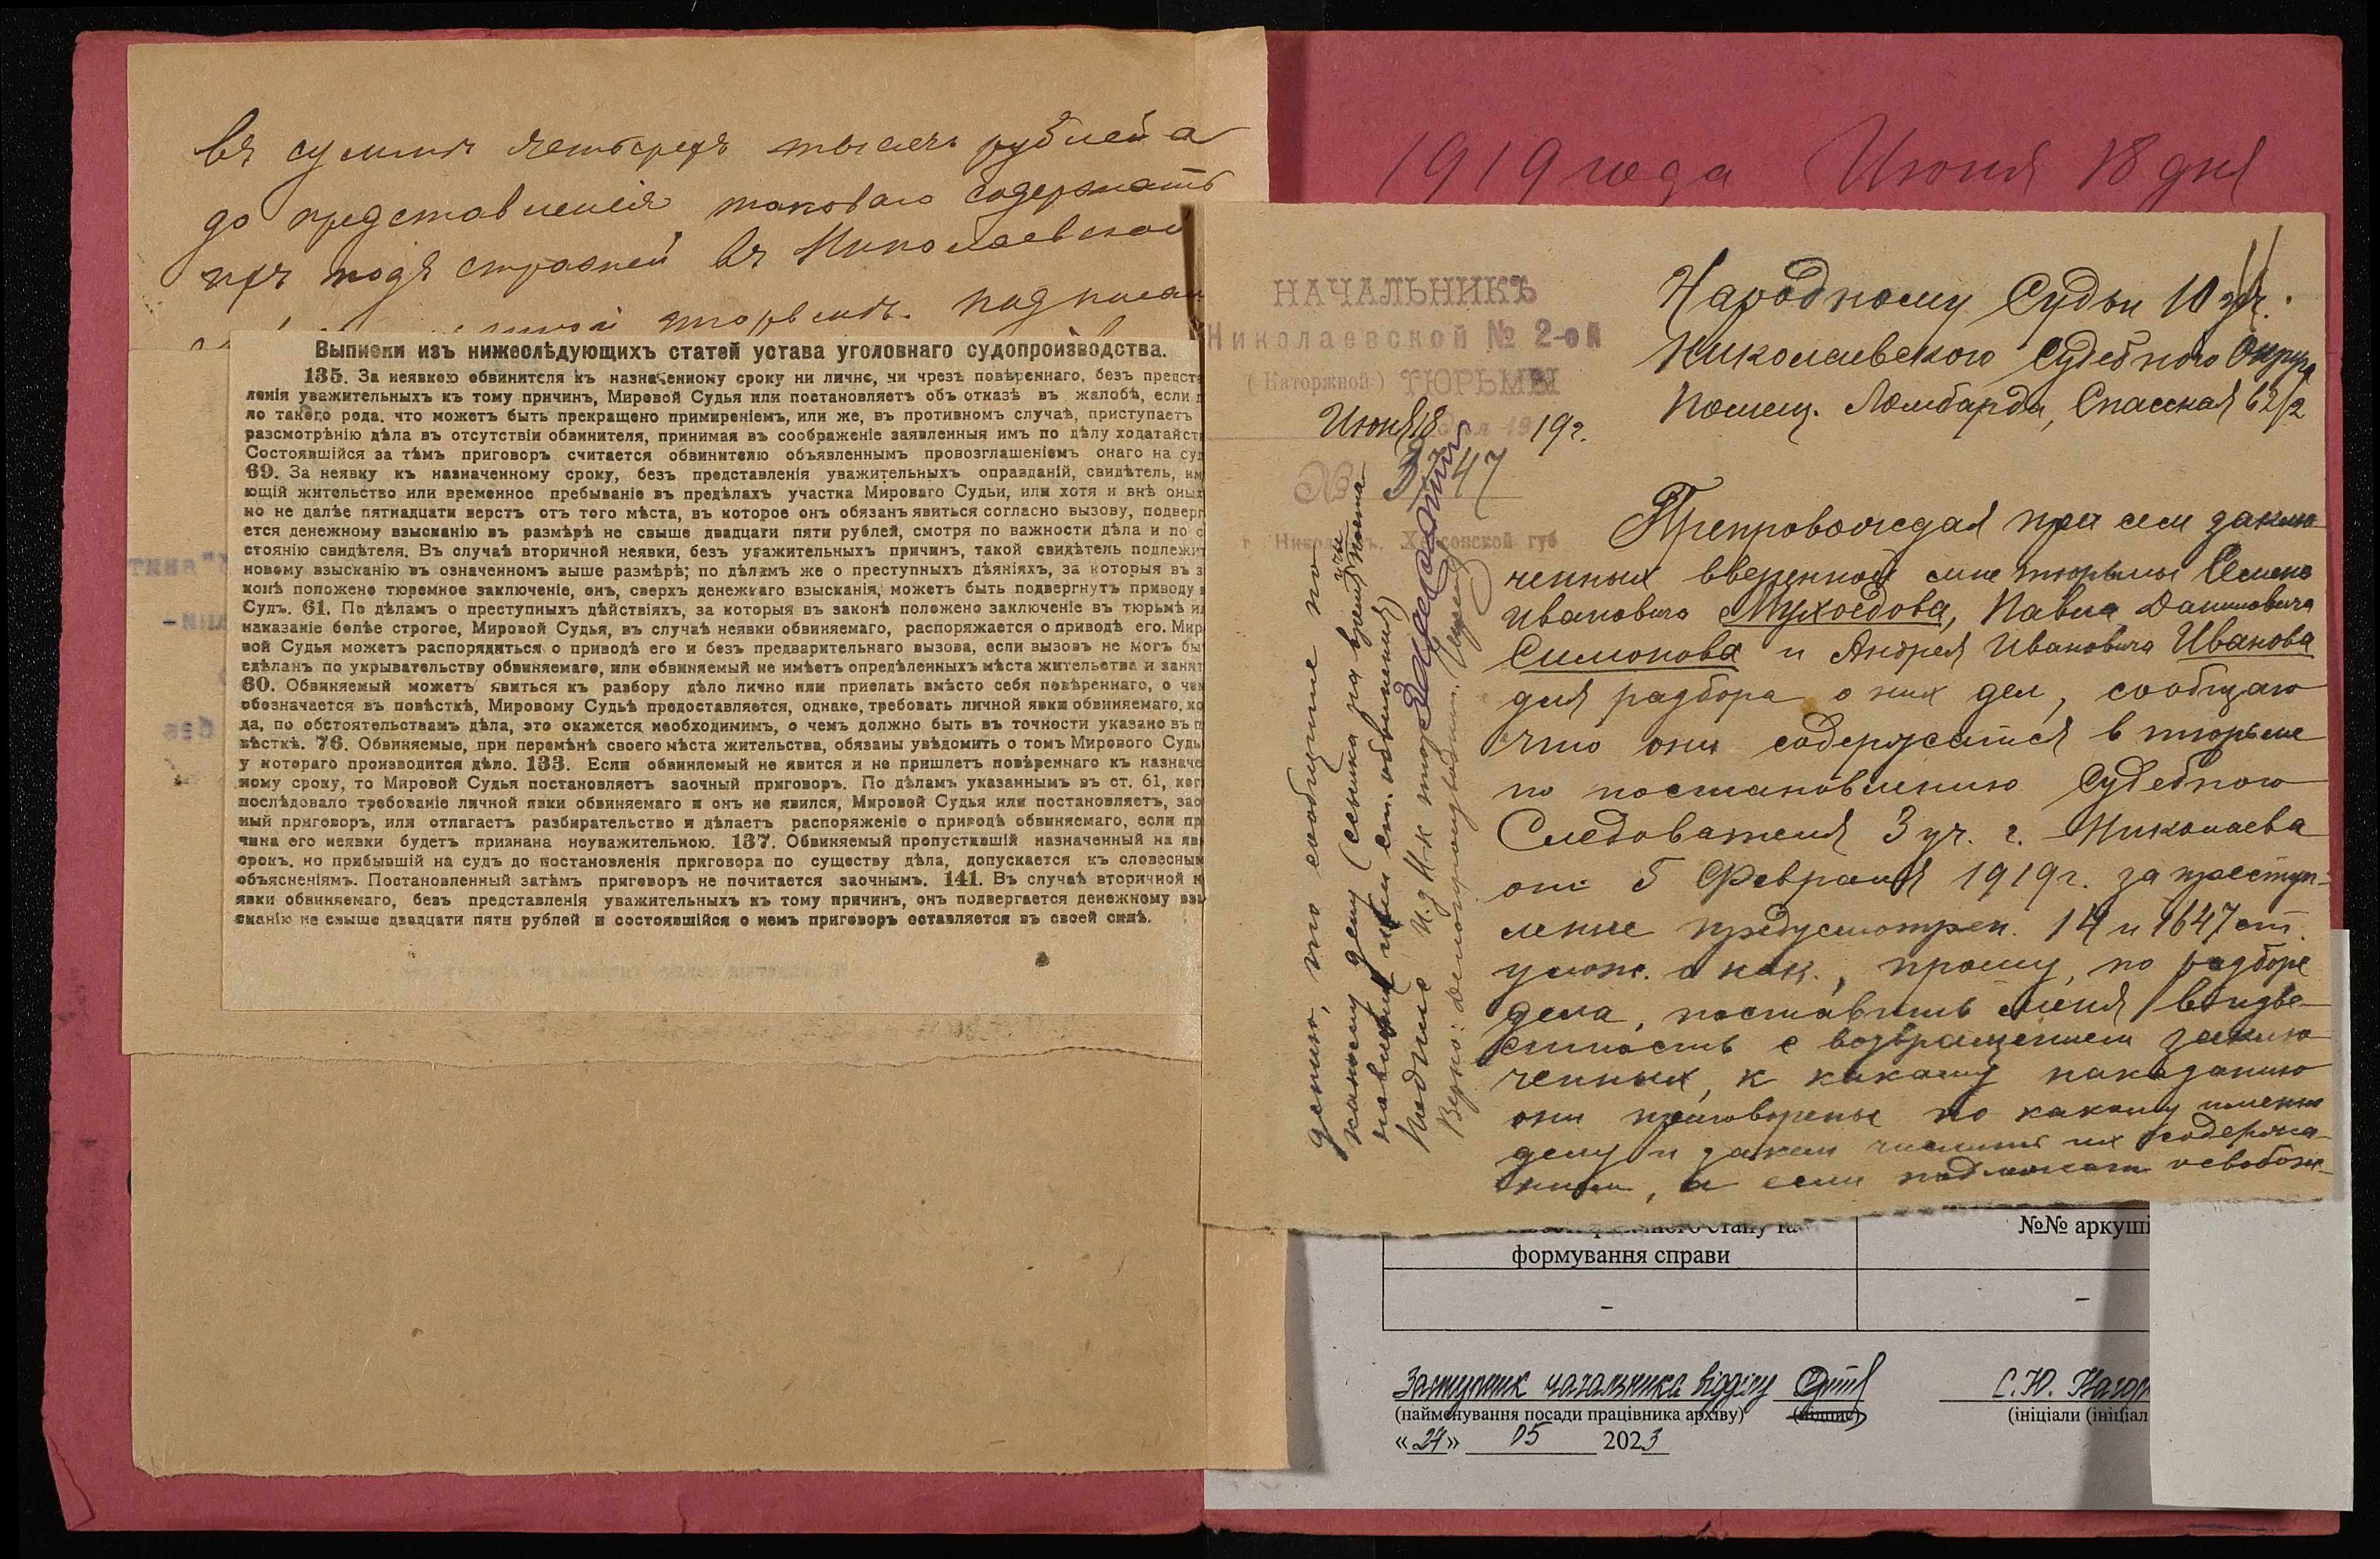 въ суммѣ четырехъ тысячъ рублей а
до представленія таковаго содержать
ихъ подъ стражей въ Николаевской
тюрьмѣ. подписал
Выписки изъ нижеслѣдующихъ статей устава уголовнаго судопроизводства.
135. За неявкою обвинителя къ назначенному сроку ни лично, ни чрезъ повѣреннаго, безъ предст
ленія уважительныхъ къ тому причинъ, Мировой Судья или постановляетъ объ отказѣ въ жалобѣ, если
ло такого рода. что можетъ быть прекращено примиреніемъ, или же, въ противномъ случаѣ, приступаетъ
разсмотрѣнію дѣла въ отсутствіи обвинителя, принимая въ соображеніе заявленныя имъ по дѣлу ходатайст
Состоявшійся за тѣмъ приговоръ считается обвинителю объявленнымъ провозглашеніемъ онаго на суд
69. За неявку къ назначенному сроку, безъ представленія уважительныхъ оправданій, свидѣтель, им
ющій жительство или временное пребываніе въ предѣлахъ участка Мироваго Судьи, или хотя и внѣ оныхъ
но не далѣе пятнадцати верстъ отъ того мѣста, въ которое онъ обязанъ явиться согласно вызову, подверг
ется денежному взысканію въ размѣрѣ не свыше двадцати пяти рублей, смотря по важности дѣла и по с
стоянію свидѣтеля. Въ случаѣ вторичной неявки, безъ уважительныхъ причинъ, такой свидѣтель подлежит
новому взысканію въ означенномъ выше размѣрѣ; по дѣламъ же о преступныхъ дѣяніяхъ, за которыя въ з
конѣ положено тюремное заключеніе, онъ, сверхъ денежнаго взысканія, можетъ быть подвергнутъ приводу
Судъ. 61. По дѣламъ о преступныхъ дѣйствіяхъ, за которыя въ законѣ положено заключеніе въ тюрьмѣ ил
наказаніе болѣе строгое, Мировой Судья, въ случаѣ неявки обвиняемаго, распоряжается о приводѣ его. Мир
вой Судья можетъ распорядиться о приводѣ его и безъ предварительнаго вызова, если вызовъ не могъ бы
сдѣланъ по укрывательству обвиняемаго, или обвиняемый не имѣетъ опредѣленныхъ мѣста жительства и занят
60. Обвиняемый можетъ явиться къ разбору дѣло лично или прислать вмѣсто себя повѣреннаго, о чем
обозначается въ повѣсткѣ, Мировому Судьѣ предоставляется, однако, требовать личной явки обвиняемаго, ко
да, по обстоятельствамъ дѣла, это окажется необходимымъ, о чемъ должно быть въ точности указано въ п
вѣсткѣ. 76. Обвиняемые, при перемѣнѣ своего мѣста жительства, обязаны увѣдомить о томъ Мирового Судь
у котораго производится дѣло. 133. Если обвиняемый не явится и не пришлетъ повѣреннаго къ назначе
ному сроку, то Мировой Судья постановляетъ заочный приговоръ. По дѣламъ указаннымъ въ ст. 61, ког
послѣдовало требованіе личной явки обвиняемаго и онъ не явился, Мировой Судья или постановляетъ, зао
ный приговоръ, или отлагаетъ разбирательство и дѣлаетъ распоряженіе о приводѣ обвиняемаго, если пр
чина его неявки будетъ признана неуважительною. 137. Обвиняемый пропустившій назначенный на яв
срокъ, но прибывшій на судъ до постановленія приговора по существу дѣла, допускается къ словесным
объясненіямъ. Постановленный затѣмъ приговоръ не почитается заочнымъ. 141. Въ случаѣ вторичной н
явки обвиняемаго, безъ представленія уважительныхъ къ тому причинъ, онъ подвергается денежному взы
сканію не свыше двадцати пяти рублей и состоявшійся о немъ приговоръ оставляется въ своей силѣ.
1919 года Июня 18 дня
НАЧАЛЬНИКЪ
Николаевской № 2-ой
(Каторжной) ТЮРЬМЫ
Июня 18 1919г.
№ 3747
г. Николаевъ, Херсонской губ
Народному Судьи 10 уч.
Николаевского Судебного Округа
Помещ. Ломбарда, Спасская 62/2
Препровождая при сем заклю-
ченных вверенной мне тюрьмы Семена
Ивановича Мухоедова, Павла Даниловича
Симонова и Андрея Ивановича Иванова
для разбора о них дел, сообщаю
что они содержатся в тюрьме
по постановлению Судебного
Следователя 3 уч. г. Николаева
от 5 Февраля 1919г. за преступ-
ление предусмотрен. 14 и 1647 ст.
улож. о нак., прошу, по разборе
дела, поставить меня в извe-
стность с возвращением заклю-
ченных, к какому наказанию
они приговорены по какому именно
делу и за кем числить их содержа-
нием, а если подлежат освобож-
дению, то сообщите по
какому делу (ссылка на время поста
новления или ст. обвинения)
Подпис И.д. Н-к тюр
Верно: Делопроизводит.
формування справи
№№ аркуші
-
-
Заступник начальника відділу
С.Ю.
(найменування посади працівника архіву)
(підпис)
(ініціали (ініціал
«24» 05 2023